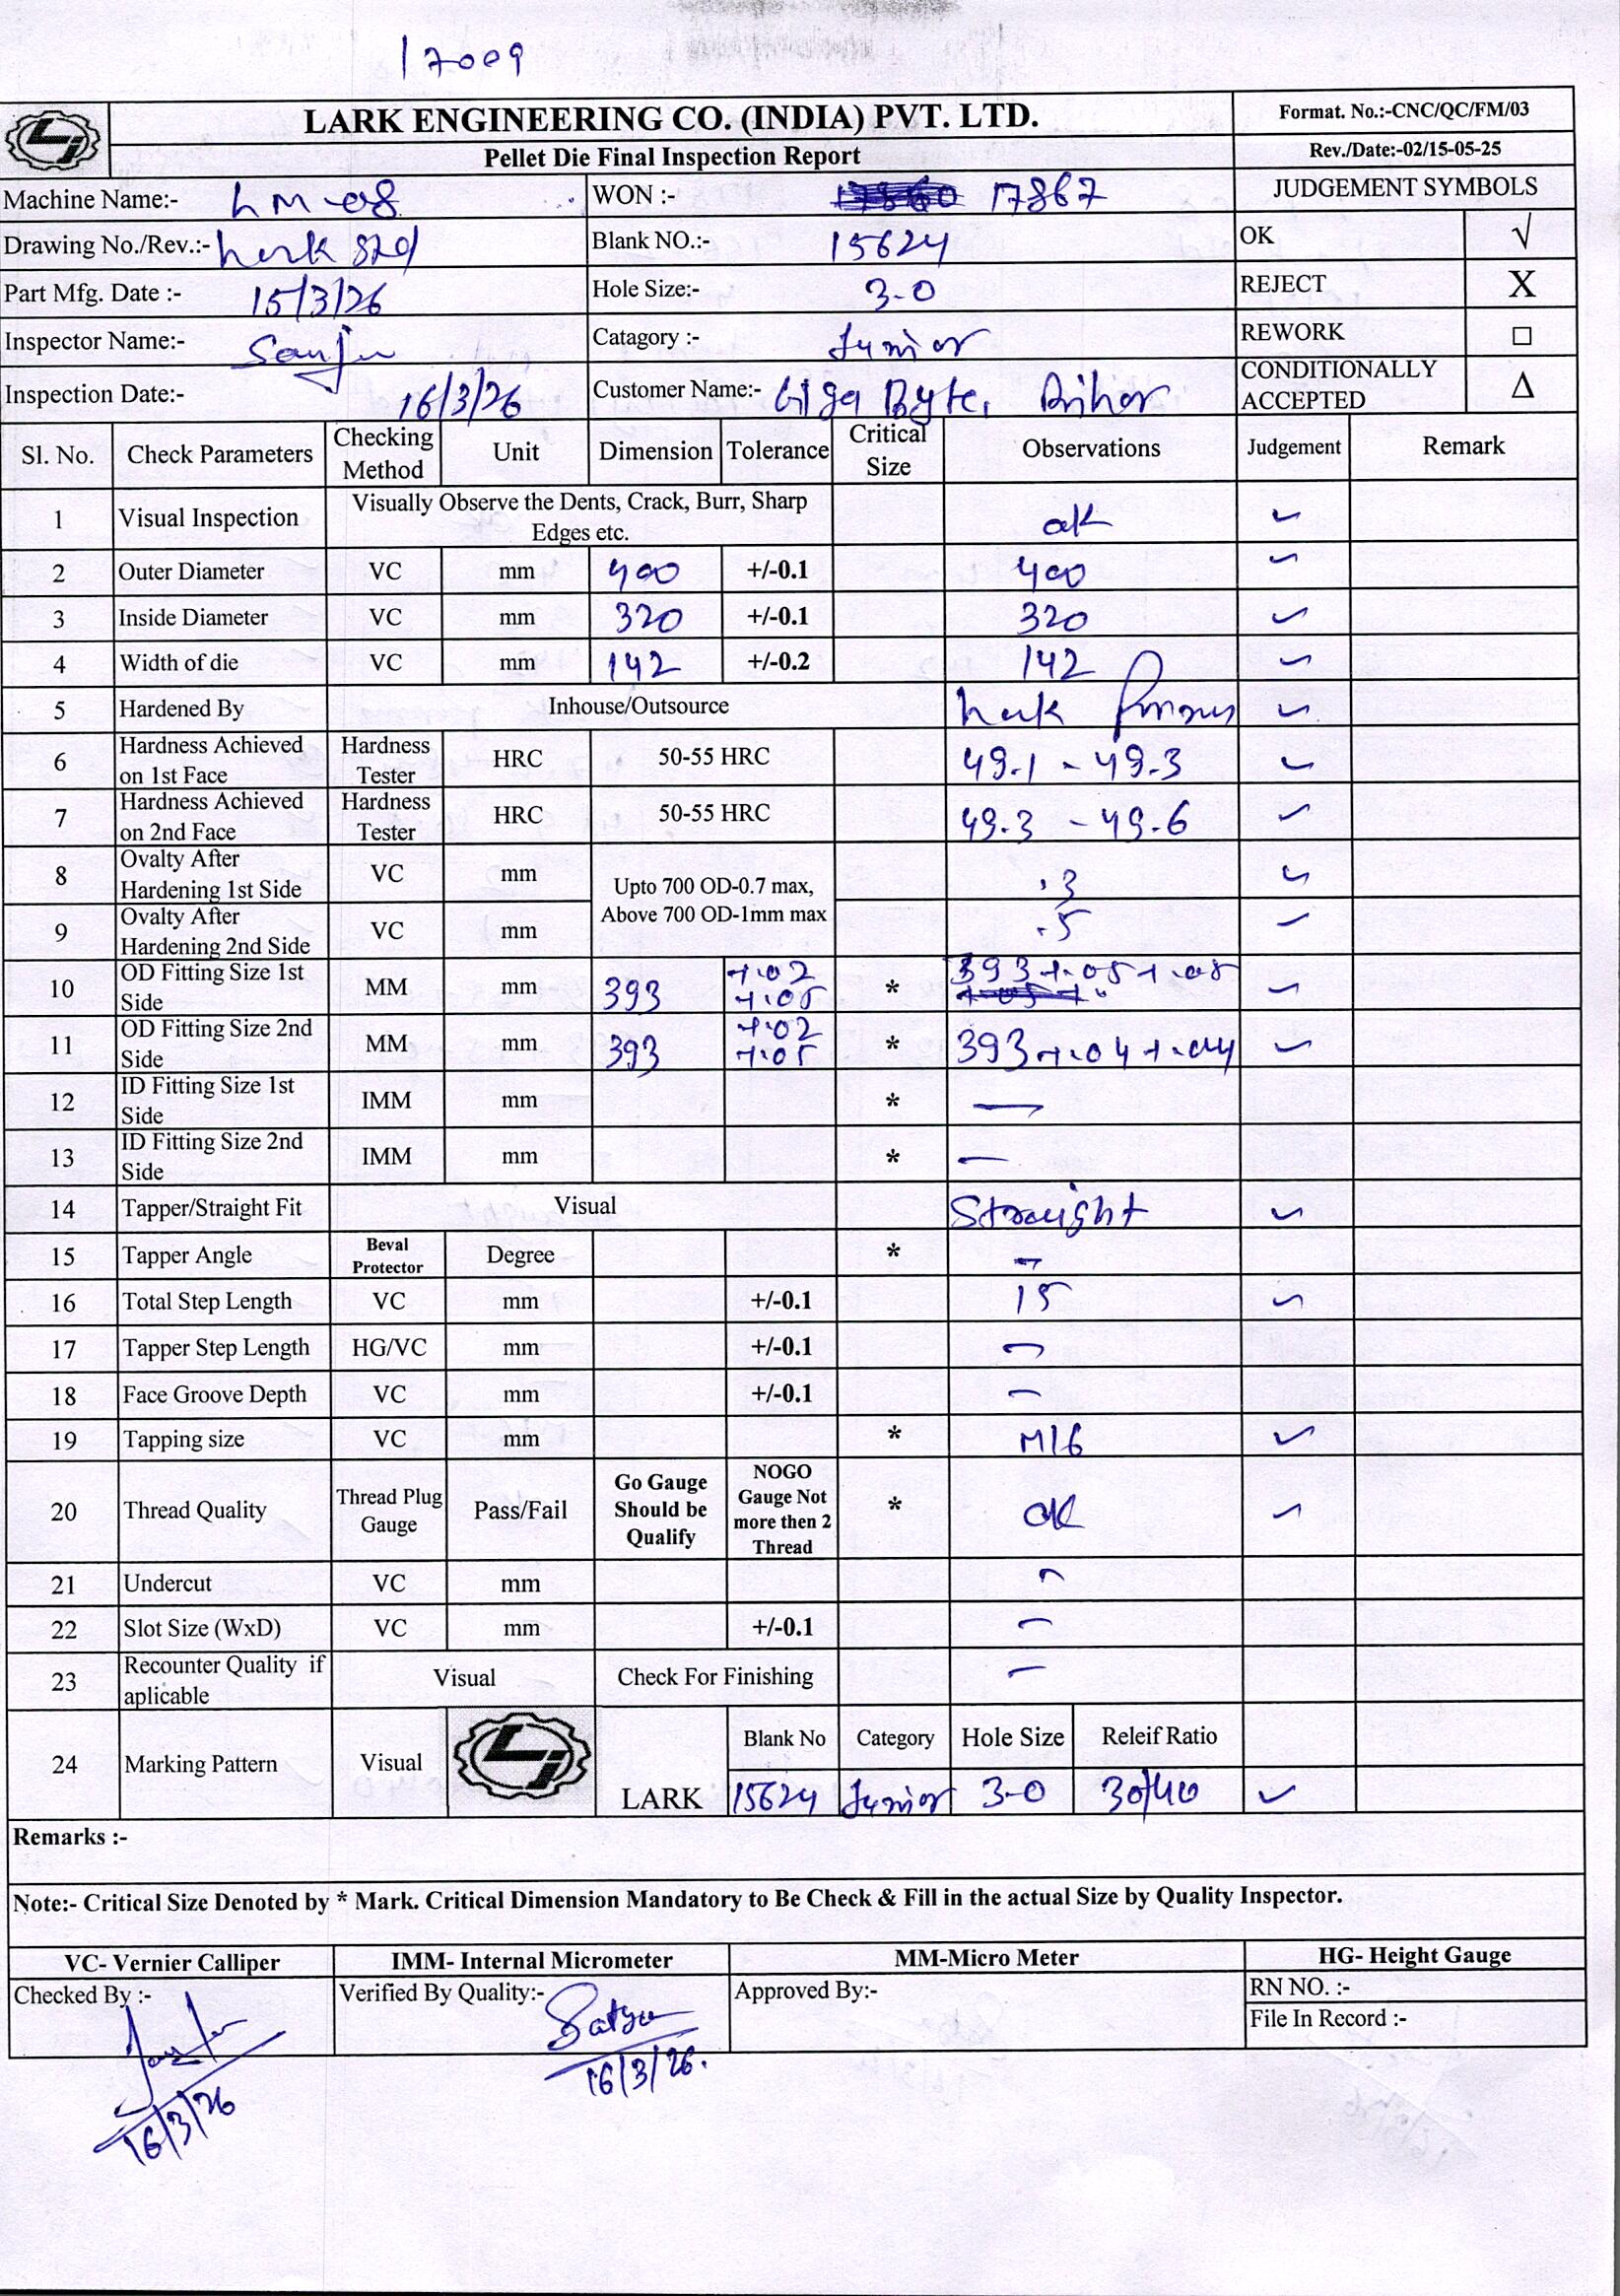 17009
LARK ENGINEERING CO. (INDIA) PVT. LTD.
Format. No.:-CNC/QC/FM/03
Pellet Die Final Inspection Report
Rev./Date:-02/15-05-25
Machine Name:- LM-08 WON :- 17867 JUDGEMENT SYMBOLS
Drawing No./Rev.:- Lark std Blank NO.:- 15624 OK √
Part Mfg. Date :- 15/3/26 Hole Size:- 3-0 REJECT X
Inspector Name:- Sanju Catagory :- Junior REWORK □
Inspection Date:- 16/3/26 Customer Name:- Giga Byte, Bihar CONDITIONALLY ACCEPTED Δ
Sl. No. Check Parameters Checking Method Unit Dimension Tolerance Critical Size Observations Judgement Remark
1 Visual Inspection Visually Observe the Dents, Crack, Burr, Sharp Edges etc. ok ✓
2 Outer Diameter VC mm 400 +/-0.1 400 ✓
3 Inside Diameter VC mm 320 +/-0.1 320 ✓
4 Width of die VC mm 142 +/-0.2 142 ✓
5 Hardened By Inhouse/Outsource Lark ✓
6 Hardness Achieved on 1st Face Hardness Tester HRC 50-55 HRC 49.1 - 49.3 ✓
7 Hardness Achieved on 2nd Face Hardness Tester HRC 50-55 HRC 49.3 - 49.6 ✓
8 Ovalty After Hardening 1st Side VC mm Upto 700 OD-0.7 max, Above 700 OD-1mm max .3 ✓
9 Ovalty After Hardening 2nd Side VC mm .5 ✓
10 OD Fitting Size 1st Side MM mm 393 +.02 +.05 * 393+.05+.05 ✓
11 OD Fitting Size 2nd Side MM mm 393 +.02 +.05 * 393+.04+.04 ✓
12 ID Fitting Size 1st Side IMM mm * —
13 ID Fitting Size 2nd Side IMM mm * —
14 Tapper/Straight Fit Visual Straight ✓
15 Tapper Angle Beval Protector Degree * —
16 Total Step Length VC mm +/-0.1 15 ✓
17 Tapper Step Length HG/VC mm +/-0.1 —
18 Face Groove Depth VC mm +/-0.1 —
19 Tapping size VC mm * M16 ✓
20 Thread Quality Thread Plug Gauge Pass/Fail Go Gauge Should be Qualify NOGO Gauge Not more then 2 Thread * ok ✓
21 Undercut VC mm —
22 Slot Size (WxD) VC mm +/-0.1 —
23 Recounter Quality if aplicable Visual Check For Finishing —
24 Marking Pattern Visual LARK Blank No Category Hole Size Releif Ratio
15624 Junior 3-0 30/40 ✓
Remarks :-
Note:- Critical Size Denoted by * Mark. Critical Dimension Mandatory to Be Check & Fill in the actual Size by Quality Inspector.
VC- Vernier Calliper IMM- Internal Micrometer MM-Micro Meter HG- Height Gauge
Checked By :- Verified By Quality:- Satya Approved By:- RN NO. :-
File In Record :-
16/3/26 16/3/26.